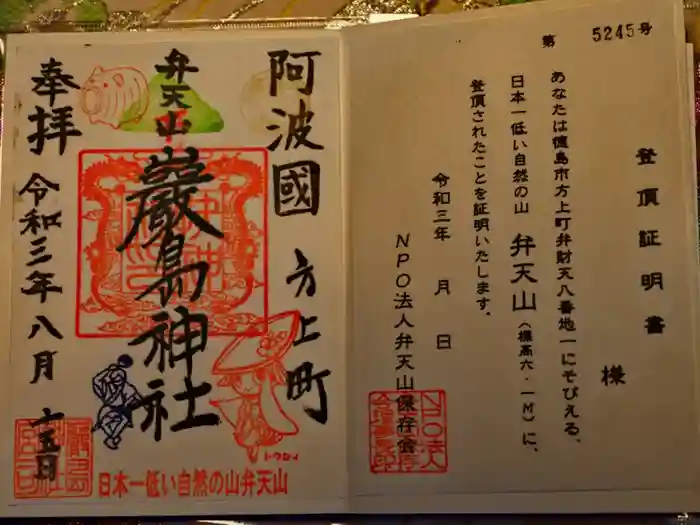 第 5245号
登頂証明書
様
あなたは徳島市方上町弁財天八番地一にそびえる、
日本一低い自然の山 弁天山(標高六・一M)に、
登頂されたことを証明いたします。
令和三年 月 日
NPO法人弁天山保存会
阿波國 方上町
弁天山
嚴島神社
奉拝 令和三年八月十五日
トクシィ
日本一低い自然の山弁天山